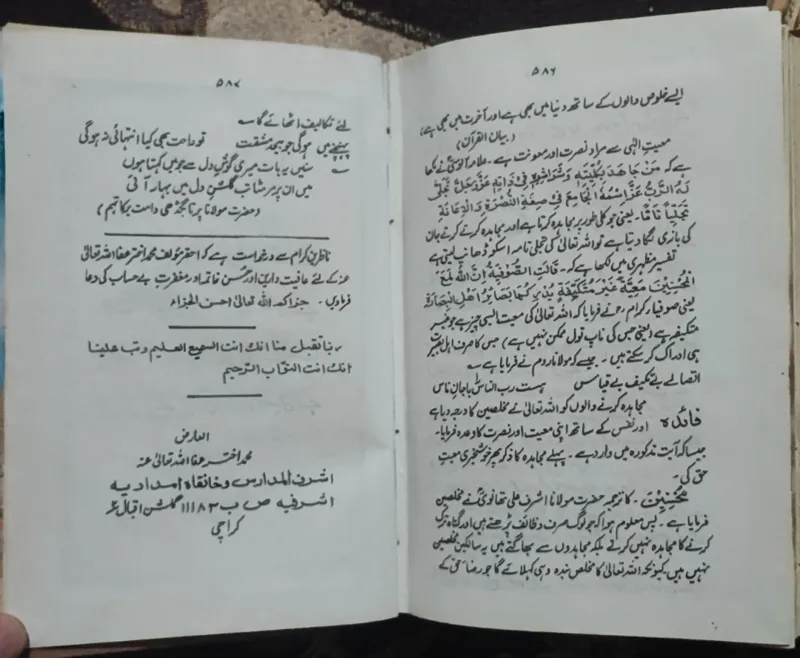 ۵۸۶
ایسے خلوص والوں کے ساتھ دنیا میں بھی ہے اور آخرت میں بھی ہے)
(بیان القرآن)
معیتِ الٰہی سے مراد نصرت اور معونت ہے۔ علامہ آلوسیؒ نے لکھا
ہے کہ مَنْ جَاهَدَ بِكُلِّيَّتِهٖ فِيْ ذَاتِهٖ عَزَّوَجَلَّ تَجَلّٰى
لَهُ الرَّبُّ عَزَّ اسْمُهُ الْجَامِعُ فِيْ صِفَةِ النُّصْرَةِ وَالْاِعَانَةِ
تَجَلِّيًا تَامًّا۔ یعنی جو کلی طور پر مجاہدہ کرتا ہے اور مجاہدہ کرتے کرتے جان
کی بازی لگا دیتا ہے تو اللہ تعالیٰ کی تجلی تامہ اسکو ڈھانپ لیتی ہے
تفسیر مظہری میں لکھا ہے کہ۔ قَالَتِ الصُّوْفِيَةُ اِنَّ اللّٰهَ لَمَعَ
الْمُحْسِنِيْنَ مَعِيَّةً غَيْرَ مُتَكَيِّفَةٍ يُدْرِكُهَا بَصَائِرُ اَهْلِ الْبَصَارَةِ
یعنی صوفیاء کرام نے فرمایا کہ اللہ تعالیٰ کی معیت ایسی چیز ہے جو غیر
متکیفہ ہے (یعنی جس کی ناپ تول ممکن نہیں ہے) جس کا صرف اہل بصیرت
ہی ادراک کر سکتے ہیں۔ جیسے کہ مولانا روم نے فرمایا ہے ؎
اتصالے بے تکیف بے قیاس ہست رب الناس را با جانِ ناس
فائدہ مجاہدہ کرنے والوں کو اللہ تعالیٰ نے مخلصین کا درجہ دیا ہے
اور نفس کے ساتھ اپنی معیت اور نصرت کا وعدہ فرمایا۔
جیسا کہ آیت مذکورہ میں وارد ہے۔ پہلے مجاہدہ کا ذکر پھر خوشخبری معیتِ
حق کی۔
مُحْسِنِيْنَ۔ کا ترجمہ حضرت مولانا اشرف علی تھانویؒ نے مخلصین
فرمایا ہے۔ پس معلوم ہوا کہ جو لوگ صرف وظائف پڑھتے ہیں اور گناہ ترک
کرنے کا مجاہدہ نہیں کرتے بلکہ مجاہدوں سے بھاگتے ہیں یہ سالکین مخلصین
نہیں ہیں۔ کیونکہ اللہ تعالیٰ کا مخلص بندہ وہی کہلائے گا جو رضاء حق کے
۵۸۷
لئے تکالیف اٹھائے گا ؎
پہنچنے میں ہوگی جو بیحد مشقت تو راحت بھی کیا انتہائی نہ ہوگی
؎ سنیں یہ بات میری گوشِ دل سے جو میں کہتا ہوں
میں ان پر مر مٹا تب گلشنِ دل میں بہار آئی
(حضرت مولانا پرتابگڈھی دامت برکاتہم)
ناظرین کرام سے درخواست ہے کہ احقر مؤلف محمد اختر عفا اللہ تعالیٰ
عنہ کے لئے عافیت دارین اور حسن خاتمہ اور مغفرت بے حساب کی دعا
فرمادیں۔ جزاکم اللہ تعالیٰ احسن الجزاء
ربنا تقبل منا انك انت السميع العليم وتب علينا
انك انت التواب الرحيم
العارض
محمد اختر عفا اللہ تعالیٰ عنہ
اشرف المدارس وخانقاہ امدادیہ
اشرفیہ ص ب ۱۱۱۸۲ گلشن اقبال ۲
کراچی